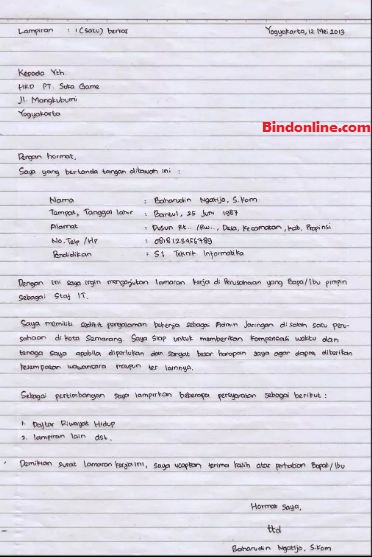 Lampiran : 1 (satu) berkas Yogyakarta, 12 Mei 2013
Kepada Yth.
HRD PT. Suka Game
Jl. Mangkubumi
Yogyakarta
Bindonline.com
Dengan hormat,
Saya yang bertanda tangan dibawah ini :
Nama : Baharudin Ngatijo, S.Kom
Tempat, Tanggal lahir : Bantul, 25 Juni 1987
Alamat : Dusun Rt.. /Rw.., Desa, Kecamatan, Kab, Propinsi
No. Telp /HP : 0818123456789
Pendidikan : S1 Teknik Informatika
Dengan ini saya ingin mengajukan lamaran kerja di Perusahaan yang Bapa/Ibu pimpin
sebagai Staf IT.
Saya memiliki sedikit pengalaman bekerja sebagai Admin Jaringan di salah satu peru-
sahaan di kota Semarang. Saya siap untuk memberikan kompensasi waktu dan
tenaga saya apabila diperlukan dan sangat besar harapan saya agar dapat diberikan
kesempatan wawancara maupun tes lainnya.
Sebagai pertimbangan saya lampirkan beberapa persyaratan sebagai berikut :
1. Daftar Riwayat Hidup
2. lampiran lain dst.
Demikian surat lamaran kerja ini, saya ucapkan terima kasih atas perhatian Bapak/Ibu
Hormat Saya,
ttd
Baharudin Ngatijo, S.Kom